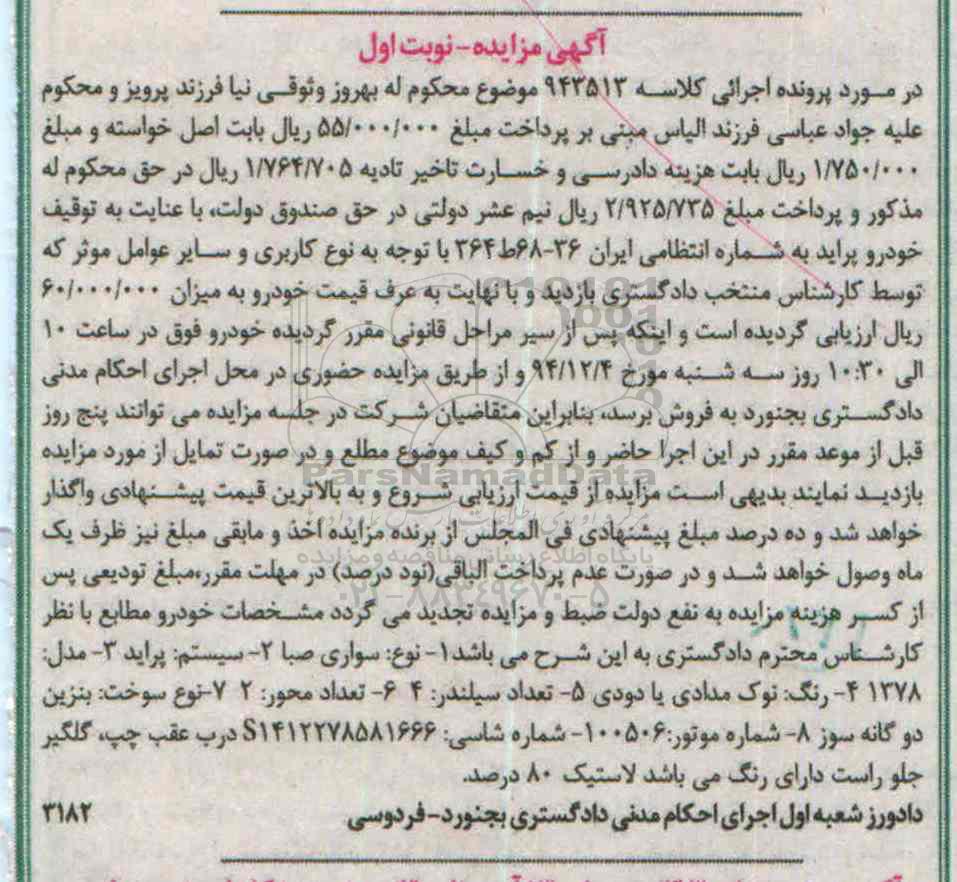 آگهی مزایده-نوبت اول
در مورد پرونده اجرائی کلاسه ۹۴۳۵۱۳ موضوع محکوم له بهروز وثوقی نیا فرزند پرویز و محکوم
علیه جواد عباسی فرزند الیاس مبنی بر پرداخت مبلغ ۵۵/۰۰۰/۰۰۰ ریال بابت اصل خواسته و مبلغ
۱/۷۵۰/۰۰۰ ریال بابت هزینه دادرسی و خسارت تاخیر تادیه ۱/۷۶۴/۷۰۵ ریال در حق محکوم له
مذکور و پرداخت مبلغ ۲/۹۲۵/۷۳۵ ریال نیم عشر دولتی در حق صندوق دولت، با عنایت به توقیف
خودرو پراید به شماره انتظامی ایران ۳۶-۶۸ط۳۶۴ با توجه به نوع کاربری و سایر عوامل موثر که
توسط کارشناس منتخب دادگستری بازدید و با نهایت به عرف قیمت خودرو به میزان ۶۰/۰۰۰/۰۰۰
ریال ارزیابی گردیده است و اینکه پس از سیر مراحل قانونی مقرر گردیده خودرو فوق در ساعت ۱۰
الی ۱۰:۳۰ روز سه شنبه مورخ ۹۴/۱۲/۴ و از طریق مزایده حضوری در محل اجرای احکام مدنی
دادگستری بجنورد به فروش برسد، بنابراین متقاضیان شرکت در جلسه مزایده می توانند پنج روز
قبل از موعد مقرر در این اجرا حاضر و از کم و کیف موضوع مطلع و در صورت تمایل از مورد مزایده
بازدید نمایند بدیهی است مزایده از قیمت ارزیابی شروع و به بالاترین قیمت پیشنهادی واگذار
خواهد شد و ده درصد مبلغ پیشنهادی فی المجلس از برنده مزایده اخذ و مابقی مبلغ نیز ظرف یک
ماه وصول خواهد شد و در صورت عدم پرداخت الباقی(نود درصد) در مهلت مقرر،مبلغ تودیعی پس
از کسر هزینه مزایده به نفع دولت ضبط و مزایده تجدید می گردد مشخصات خودرو مطابع با نظر
کارشناس محترم دادگستری به این شرح می باشد۱- نوع: سواری صبا ۲- سیستم: پراید ۳- مدل:
۱۳۷۸ ۴- رنگ: نوک مدادی یا دودی ۵- تعداد سیلندر: ۴ ۶- تعداد محور: ۲ ۷-نوع سوخت: بنزین
دو گانه سوز ۸- شماره موتور:۱۰۰۵۰۶- شماره شاسی: S۱۴۱۲۲۷۸۵۸۱۶۶۶ درب عقب چپ، گلگیر
جلو راست دارای رنگ می باشد لاستیک ۸۰ درصد.
دادورز شعبه اول اجرای احکام مدنی دادگستری بجنورد-فردوسی ۳۱۸۲
ParsNamadData
پایگاه اطلاع رسانی مناقصه و مزایده
۰۲۱-۸۸۳۴۹۶۷۰-۵